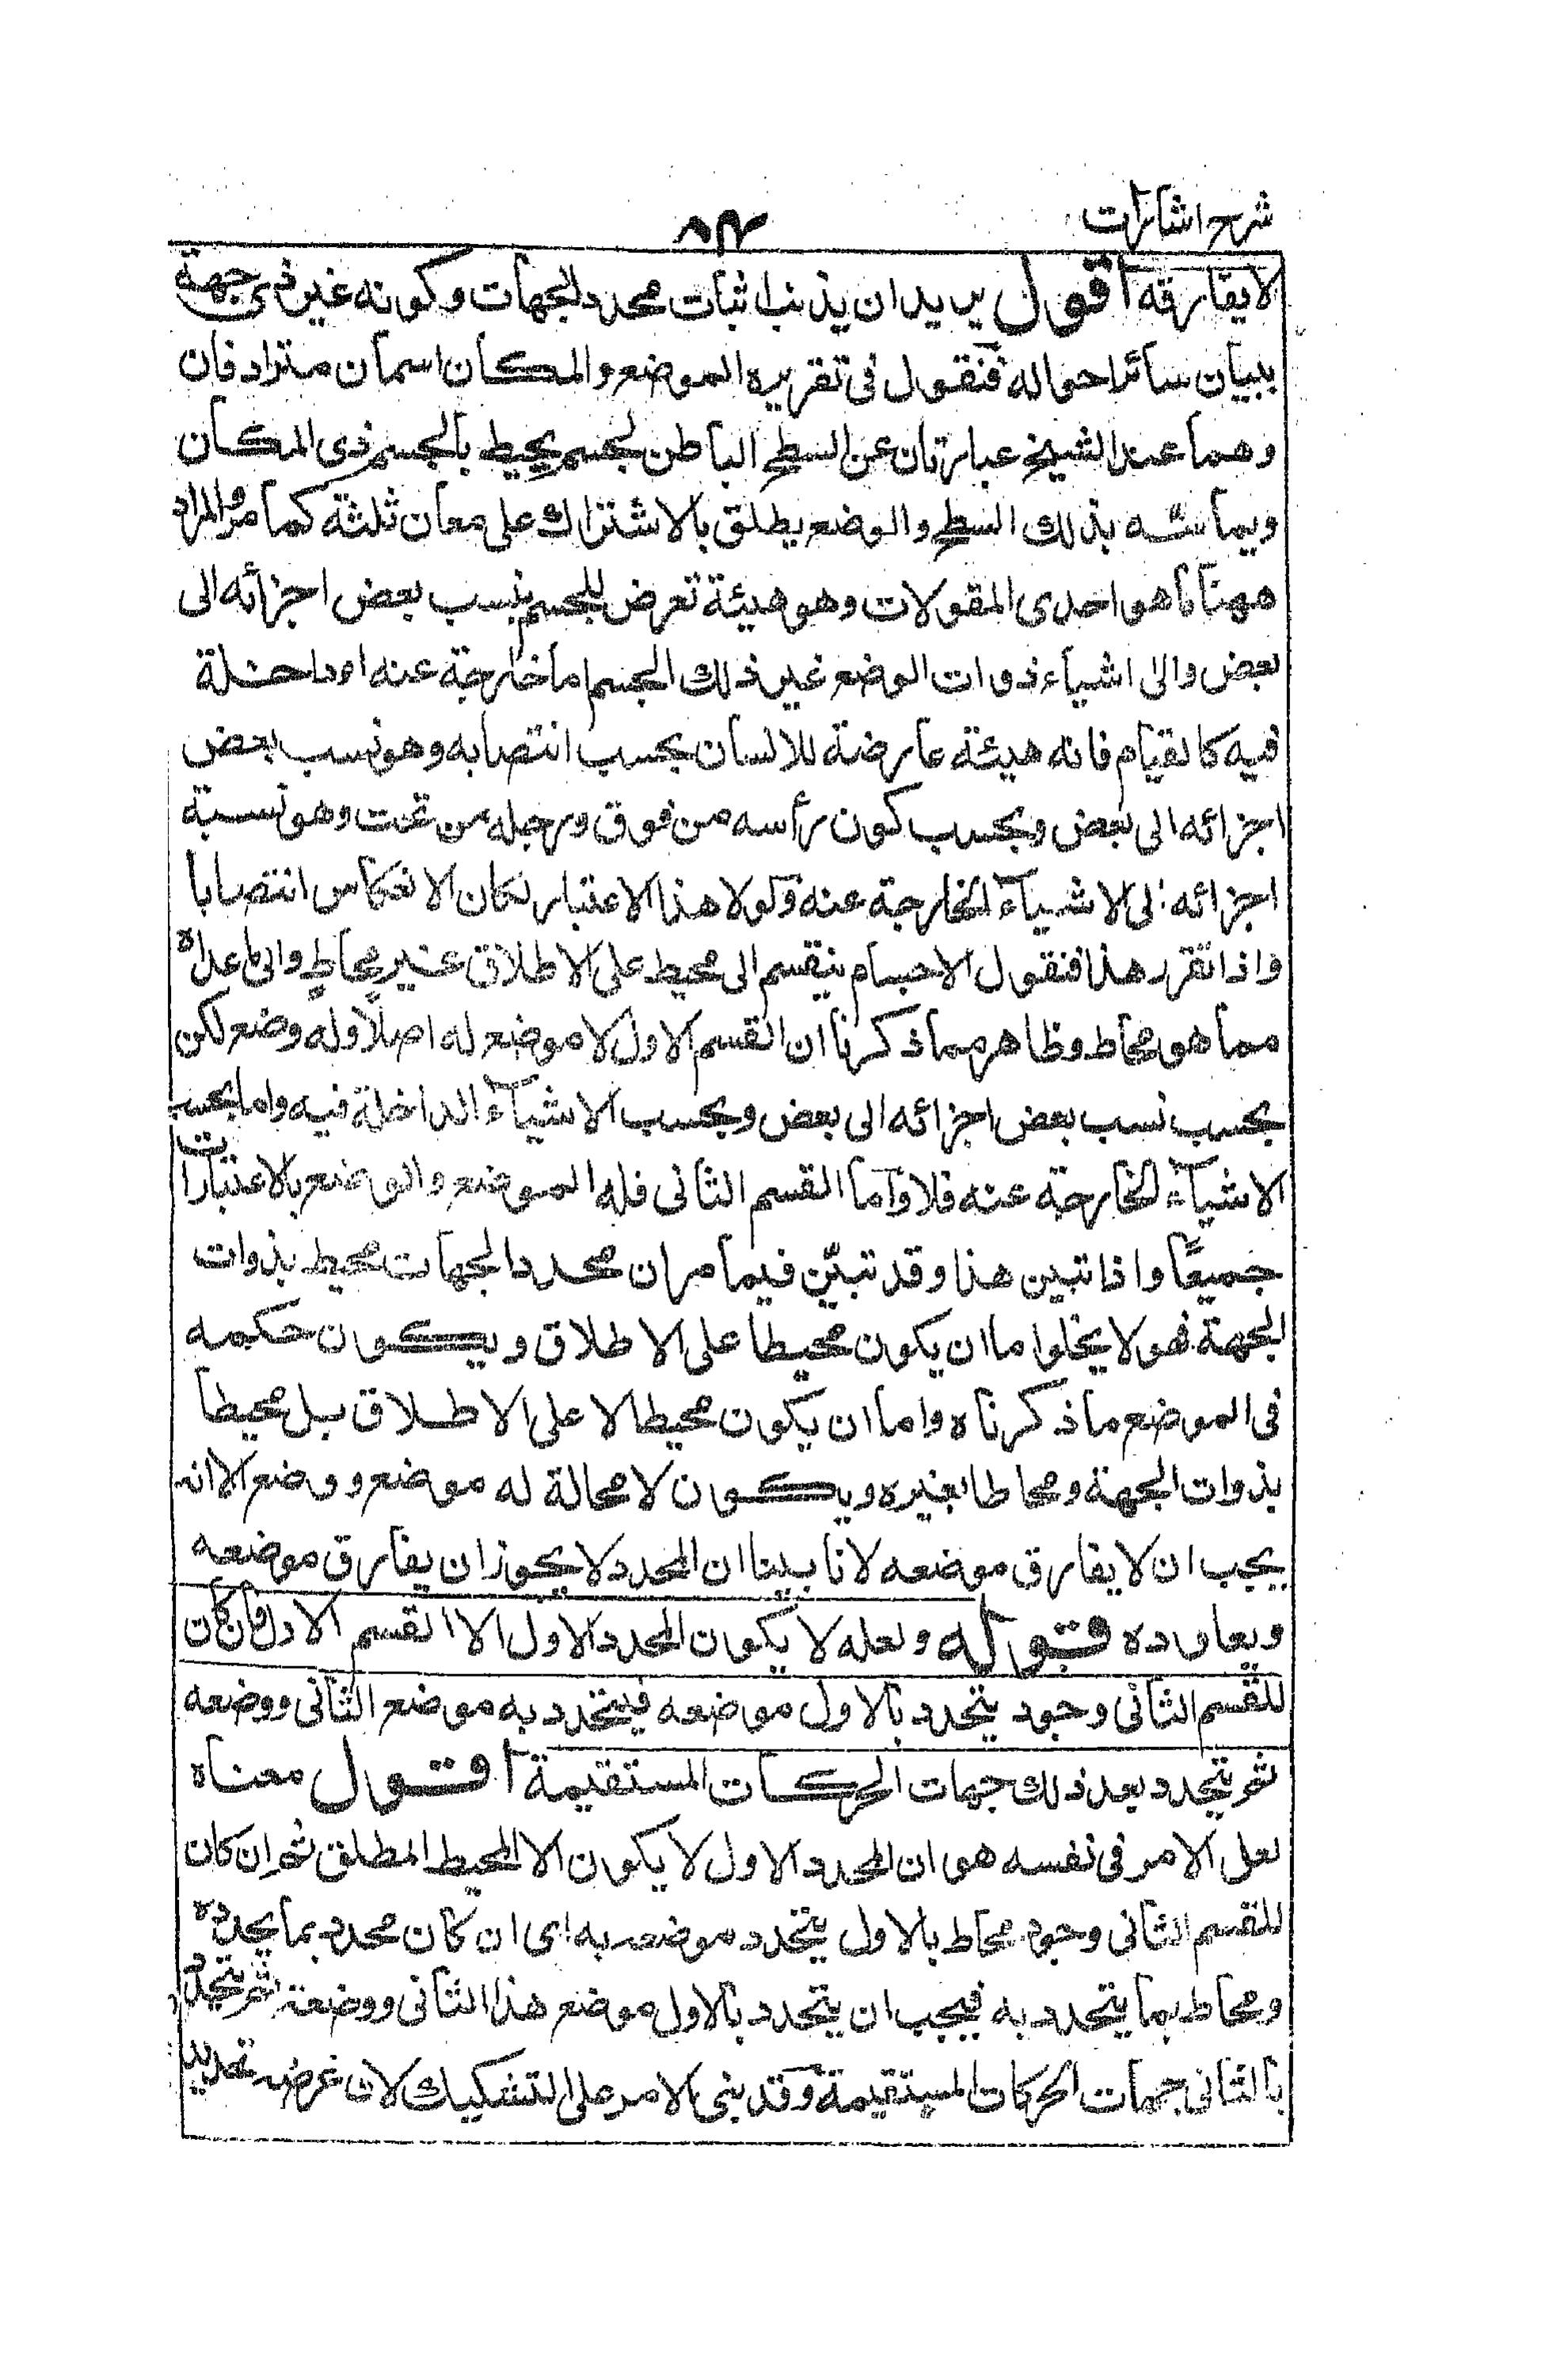 شرح اشارات
٨٣
لا يفارقه اقول يريد ان يذنب اثبات محدد الجهات وكونه غير ذى جهة
ببيان سائر احواله فنقول فى تقريره الموضع والمكان اسمان مترادفان
وهما عند الشيخ عبارتان عن السطح الباطن لجسم يحيط بالجسم ذى المكان
ويماسّه بذلك السطح والوضع يطلق بالاشتراك على معان ثلثة كما مر والمراد
ههنا ما هو احدى المقولات وهو هيئة تعرض للجسم بنسب بعض اجزائه الى
بعض والى اشياء ذوات الوضع غير ذلك الجسم اما خارجة عنه او داخلة
فيه كالقيام فانه هيئة عارضة للانسان بحسب انتصابه وهو نسب بعض
اجزائه الى بعض وبحسب كون رأسه من فوق ورجله من تحت وهو نسبة
اجزائه الى الاشياء الخارجة عنه ولولا هذا الاعتبار لكان الانعكاس انتصابا
واذا تقرر هذا فنقول الاجسام ينقسم الى محيط على الاطلاق غير محاطٍ والى ما عداه
مما هو محاط وظاهر مما ذكرنا ان القسم الاول لا موضع له اصلاً وله وضع لكن
بحسب نسب بعض اجزائه الى بعض وبحسب الاشياء الداخلة فيه واما بحسب
الاشياء الخارجة عنه فلا واما القسم الثانى فله الموضع والوضع بالاعتبارات
جميعًا واذا تبين هذا وقد تبيّن فيما مر ان محدد الجهات محيط بذوات
الجهة فهو لا يخلوا ما ان يكون محيطا على الاطلاق ويكون حكمه
فى الموضع ما ذكرناه واما ان يكون محيطا لا على الاطلاق بل محيطا
بذوات الجهة ومحاطا بغيره ويكون لا محالة له موضع ووضع الا انه
يجب ان لا يفارق موضعه لانا بينا ان المحدد لا يجوز ان يفارق موضعه
ويعاوده قوله ولعله لا يكون المحدد الاول الا القسم الاول فان كان
للقسم الثانى وجود يتحدد بالاول موضعه فيتحدد به موضع الثانى ووضعه
ثم يتحدد بعد ذلك جهات الحركات المستقيمة اقول معناه
لعل الامر فى نفسه هو ان المحدد الاول لا يكون الا المحيط المطلق ثم ان كان
للقسم الثانى وجود محاط بالاول يتحدد موضعه به اى ان كان محدد بما يحدده
ومحاط بما يتحدد به فيجب ان يتحدد بالاول موضع هذا الثانى ووضعه ثم يتحدد
بالثانى جهات الحركات المستقيمة وقد بنى الامر على التشكيك لان غرضه تحديد